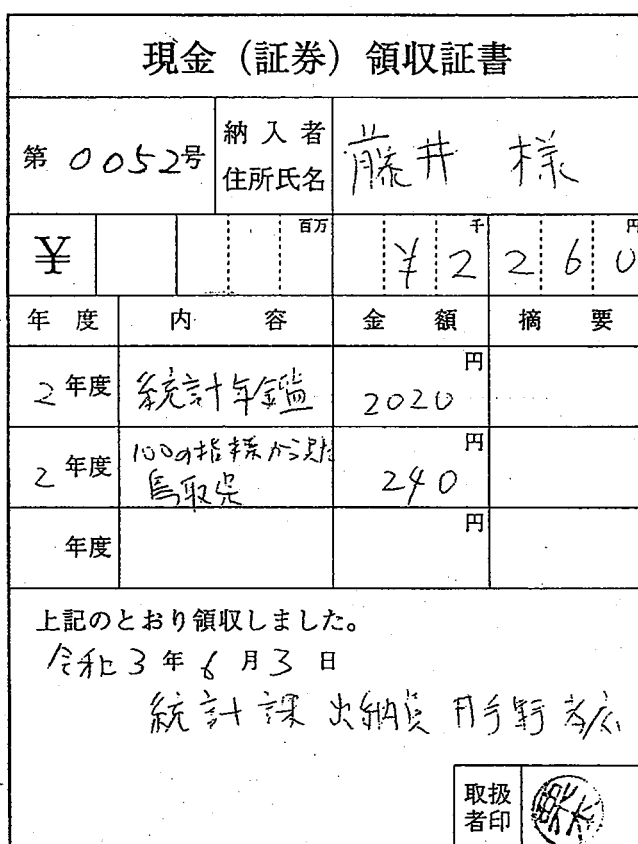 現金（証券）領収証書
第 0052号
納入者
住所氏名
藤井 様
¥ 百万 千 円
¥2260
年度 内容 金額 摘要
2年度 統計年鑑 2020円
2年度 100の指標から見た
鳥取県 240円
年度 円
上記のとおり領収しました。
令和3年6月3日
統計課 出納員
取扱
者印